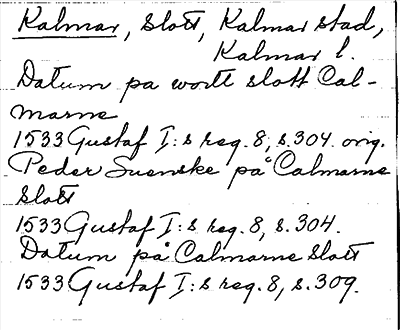 Kalmar, Slott, Kalmar stad,
Kalmar l.
Datum pa wortt slott Cal-
marne
1533 Gustaf I:s reg. 8, s. 304. orig.
Peder Suenske på Calmarne
Slott
1533 Gustaf I:s reg. 8, s. 304.
Datum på Calmarne Slott
1533 Gustaf I:s reg. 8, s. 309.